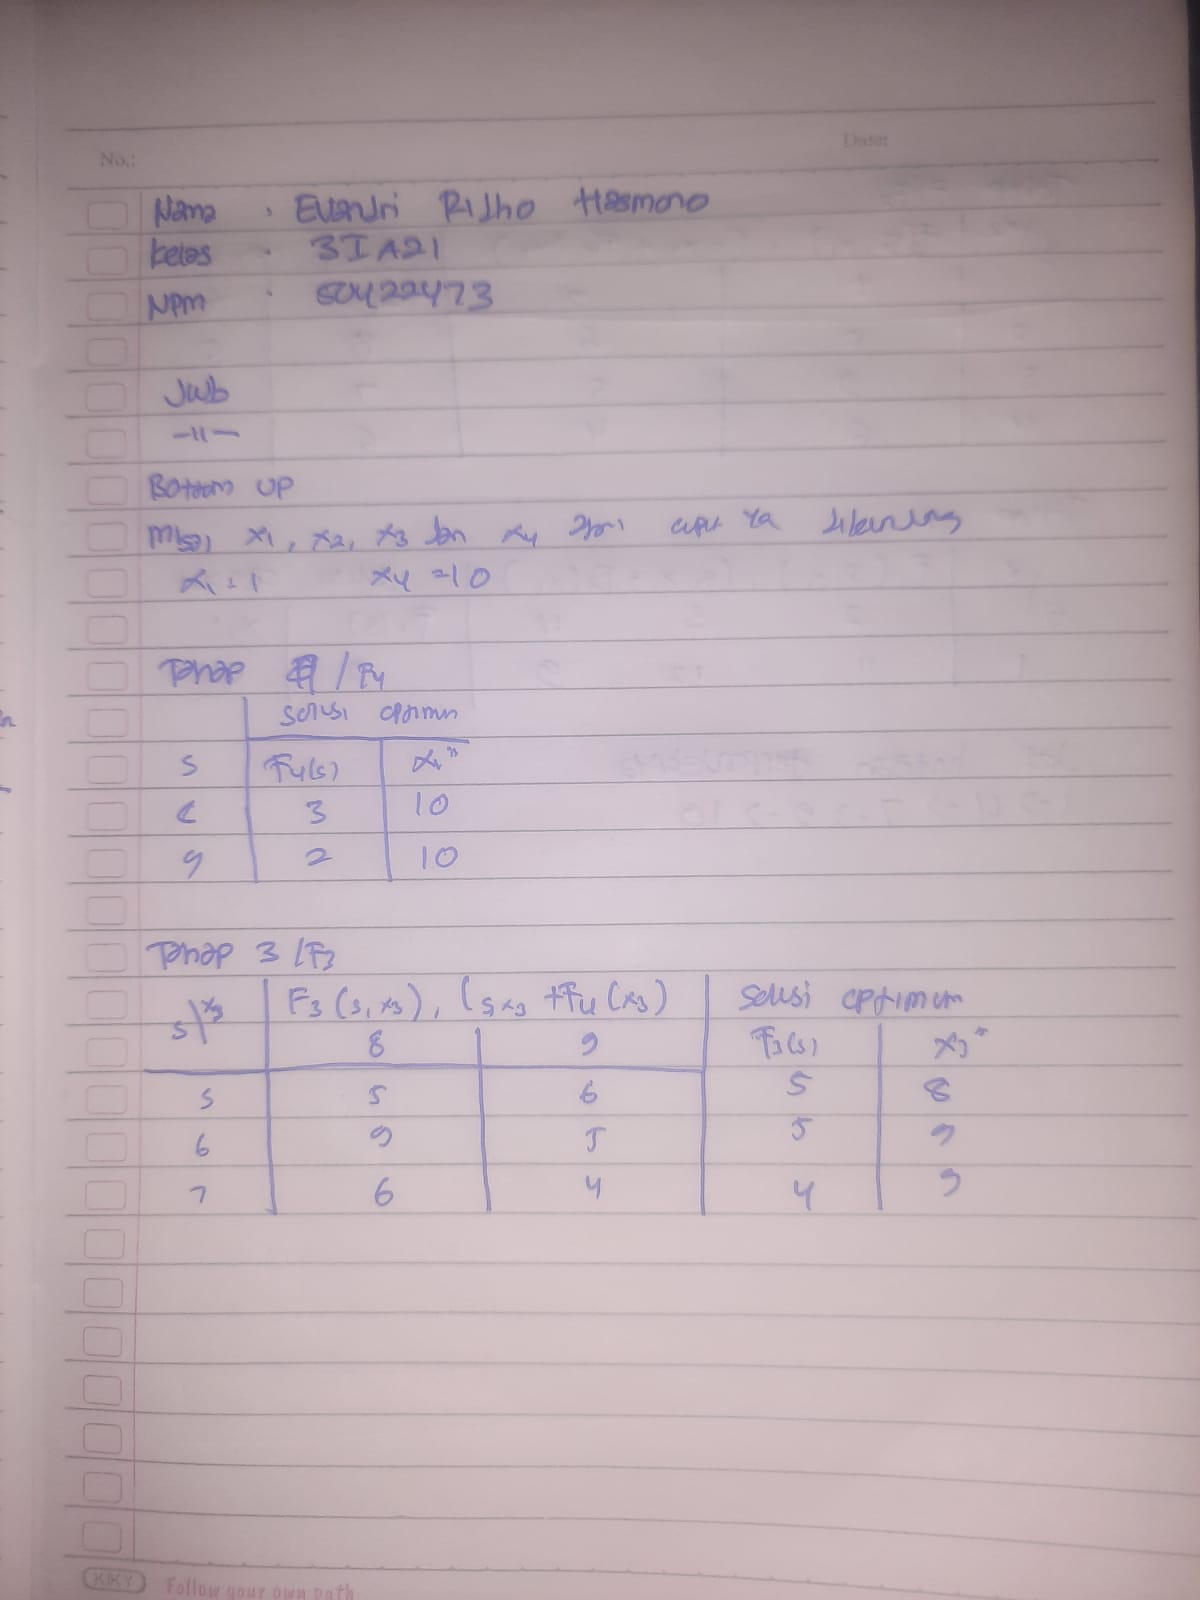 No.:
Date:
Nama : Evandri Ridho Hasmoro
Kelas : 3IA21
NPM : 50422473
Jwb
-11-
Bottom UP
Misal x1, x2, x3 dan x4
x1 = 1 x4 = 10
Tahap 4 / F4
solusi optimum
S F4(s) x4*
8 3 10
9 2 10
Tahap 3 / F3
s\x3 F3 (s, x3), (s,x3 + F4 (x3) Solusi optimum
8 9 F3(s) x3*
5 5 6 5 8
6 9 5 5 9
7 6 4 4 9
KIKY Follow your own path